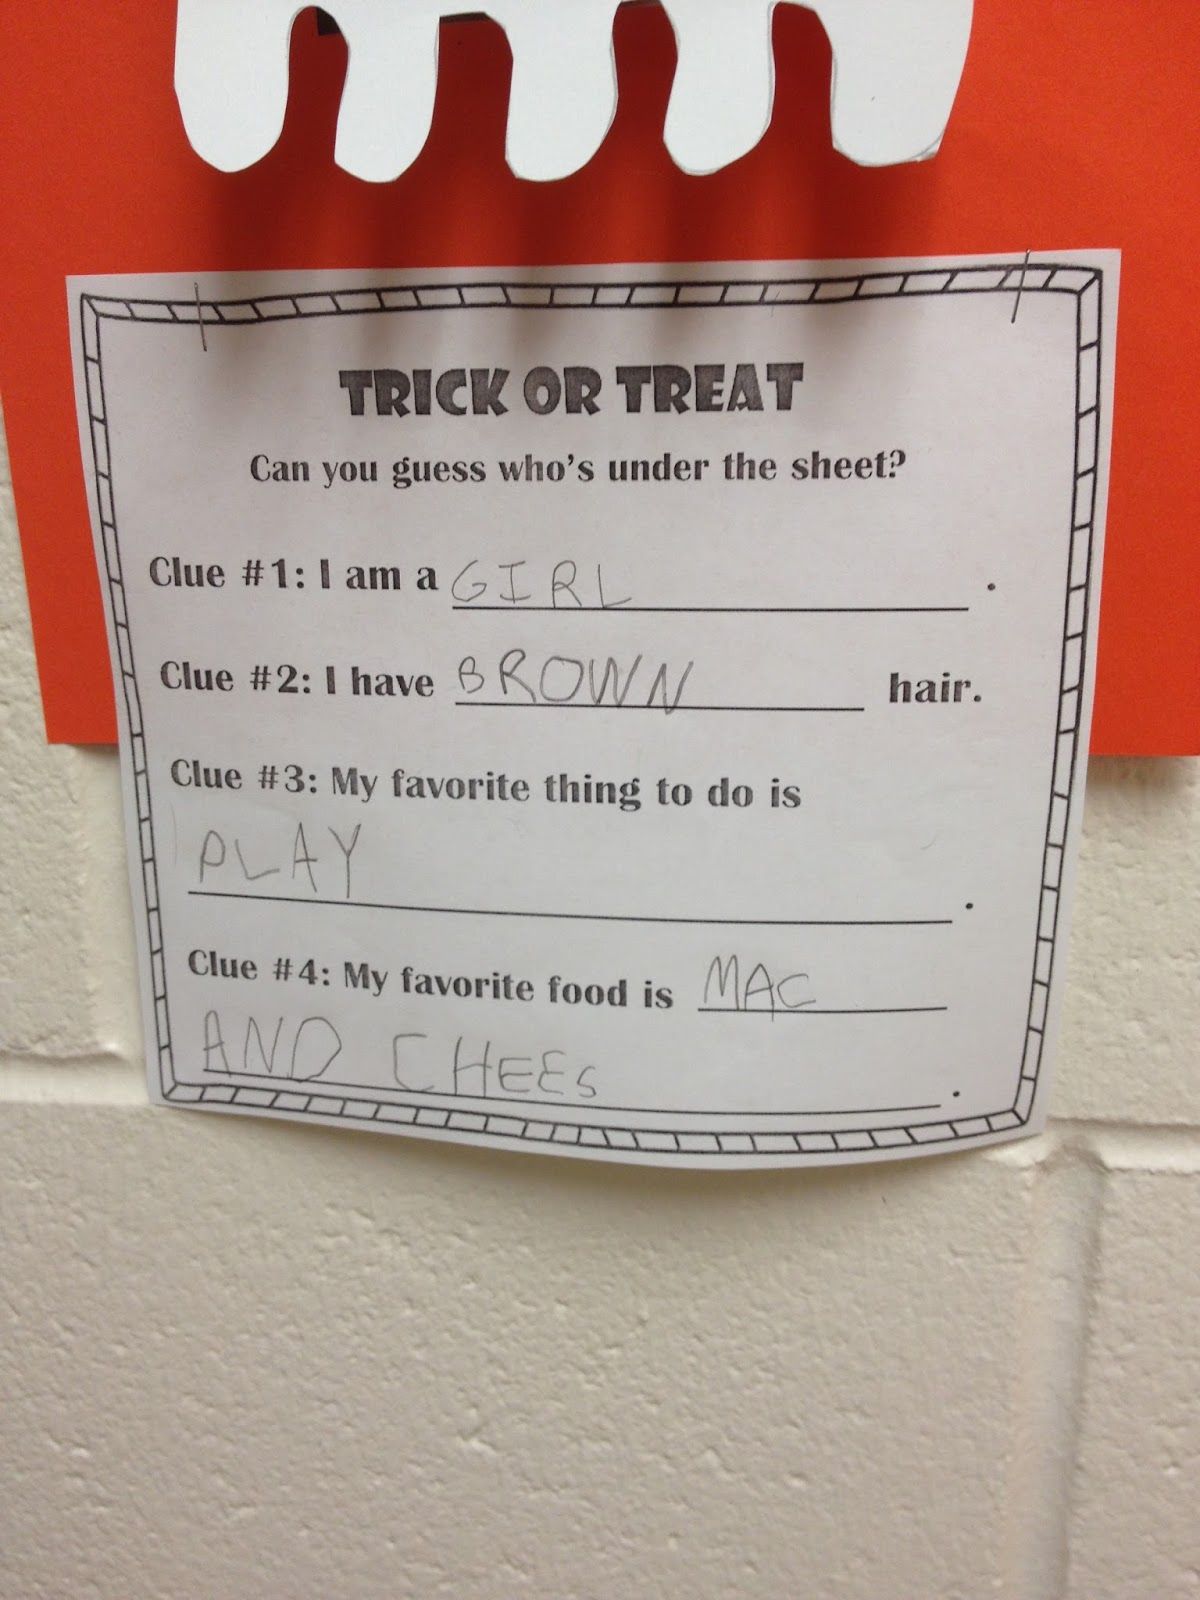 TRICK OR TREAT
Can you guess who's under the sheet?
Clue #1: I am a GIRL .
Clue #2: I have BROWN hair.
Clue #3: My favorite thing to do is
PLAY .
Clue #4: My favorite food is MAC
AND CHEES .